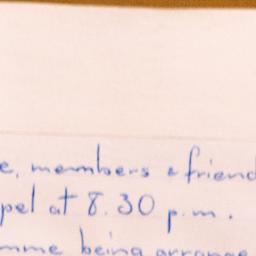 e, members & friend
pel at 8.30 p.m.
mme being arrange